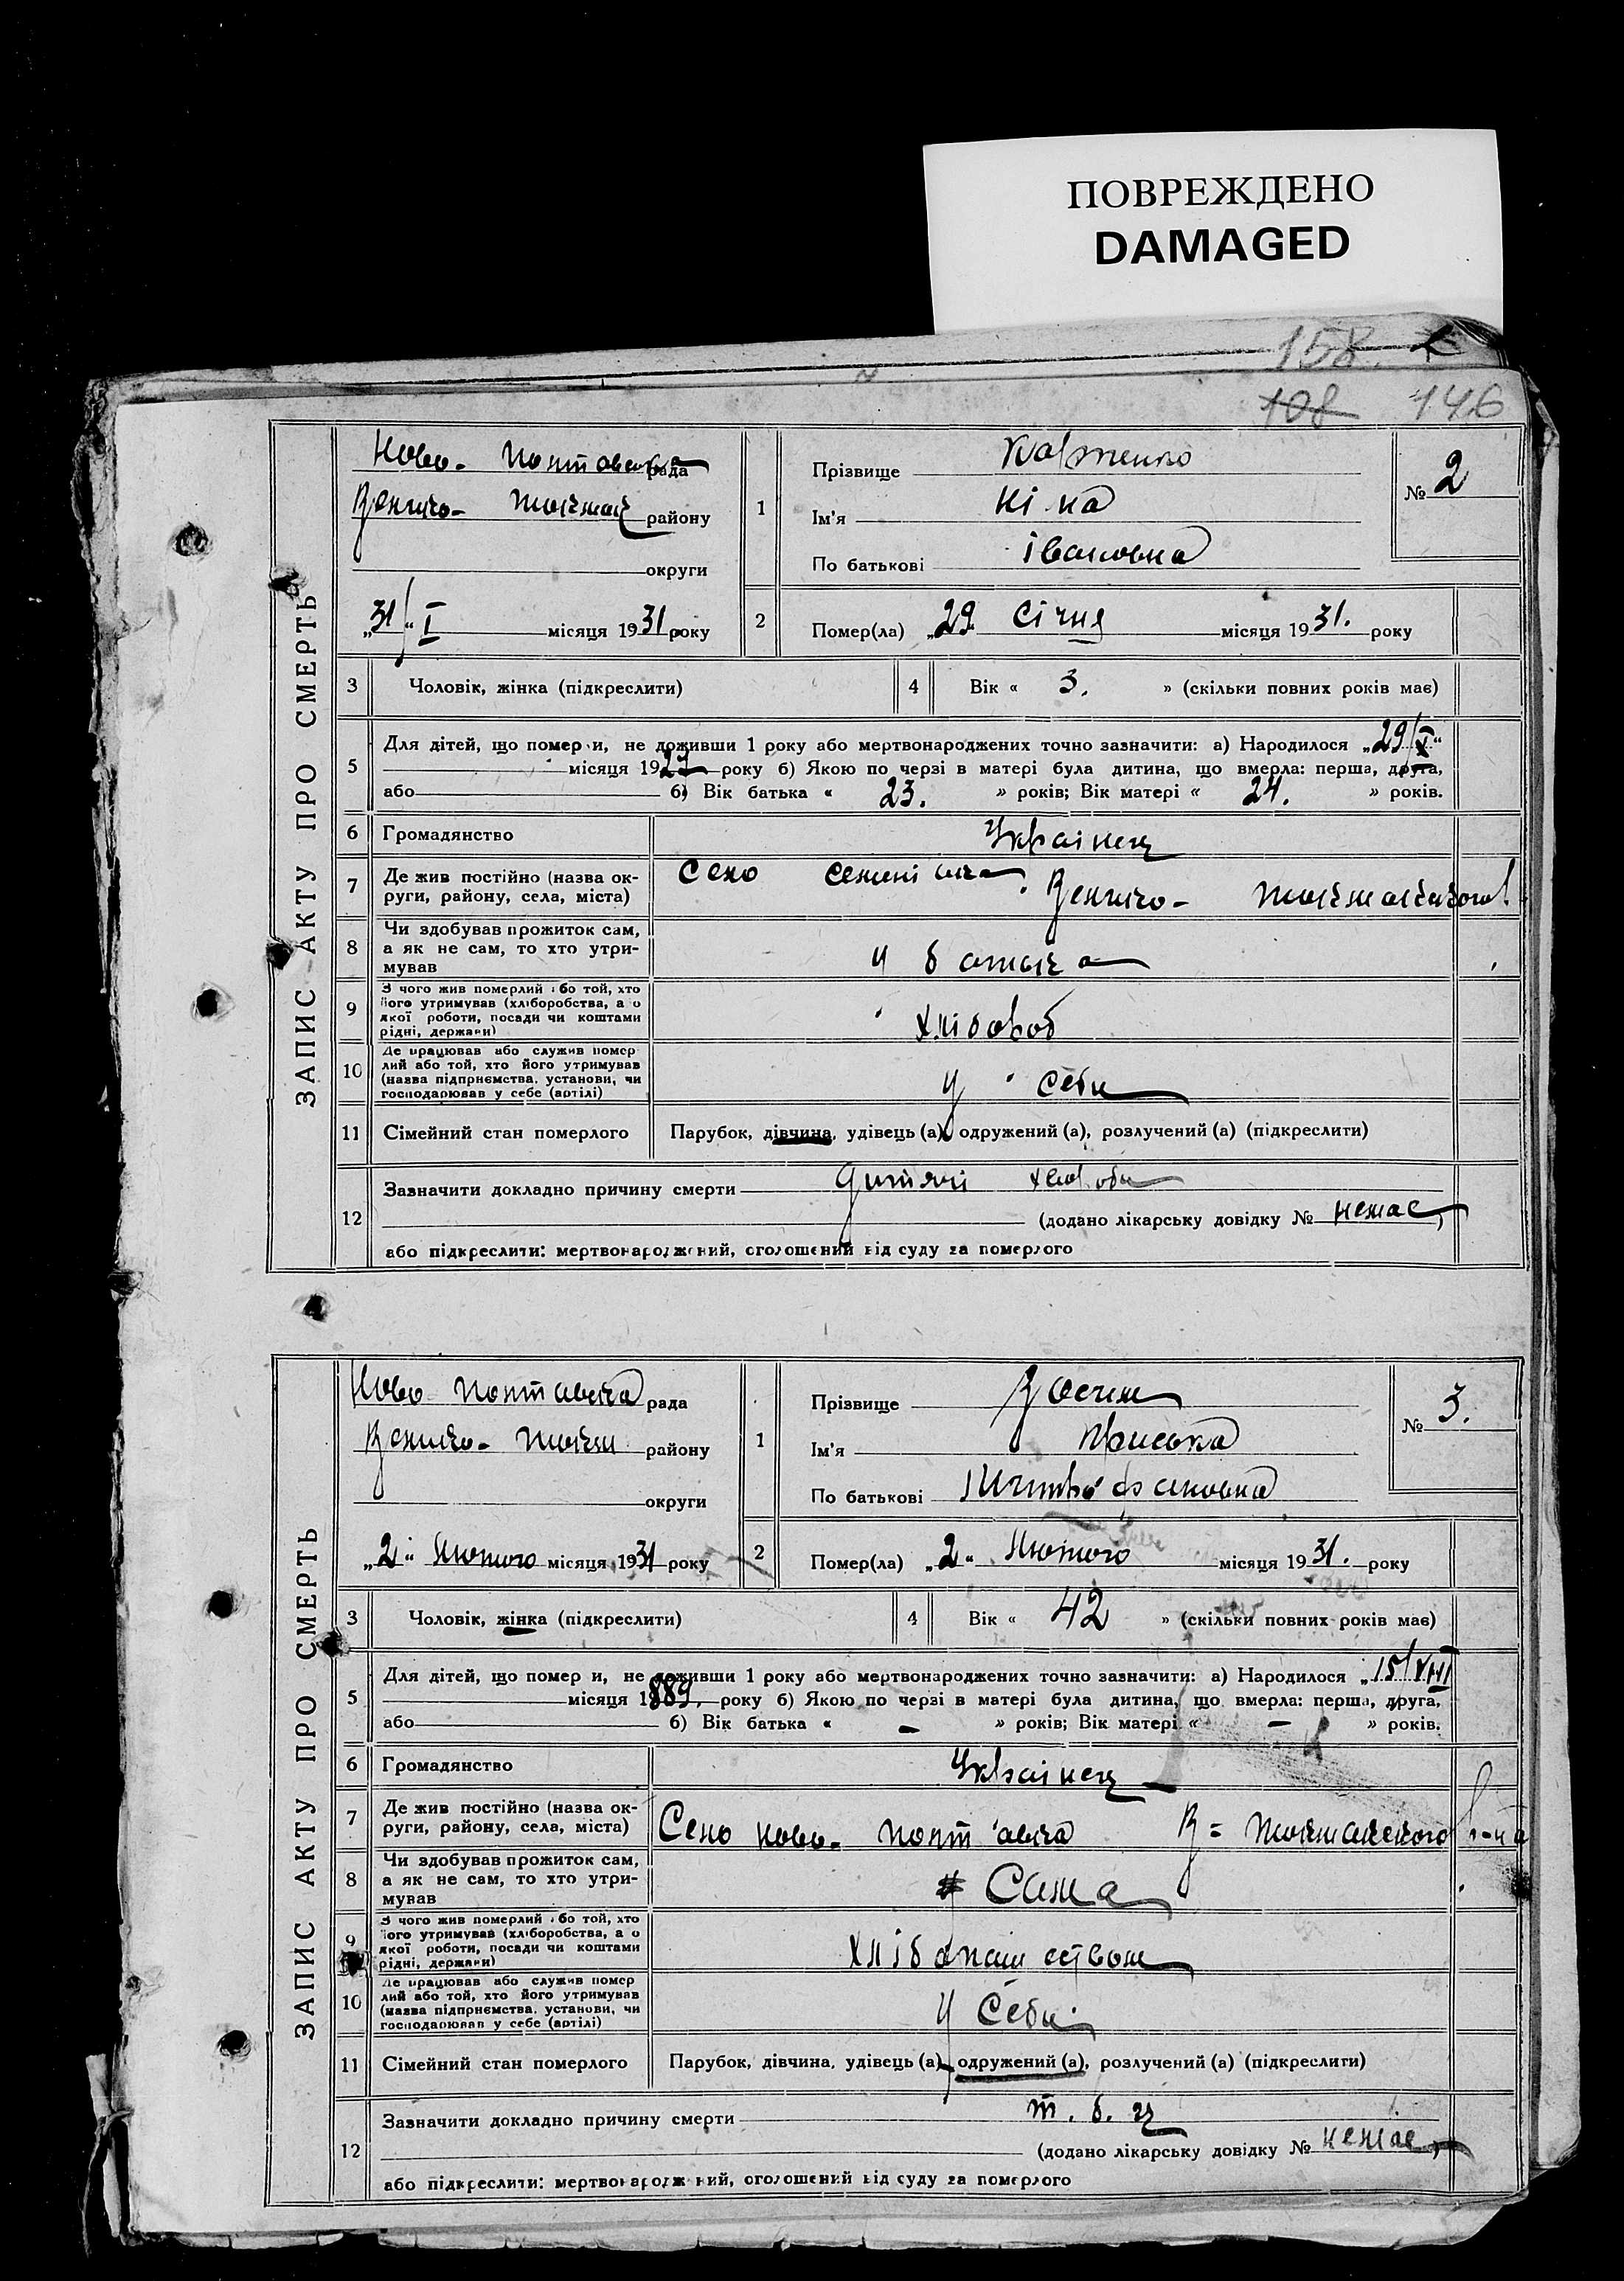 ПОВРЕЖДЕНО
DAMAGED
158.
108 146
ЗАПИС АКТУ ПРО СМЕРТЬ
Ново- Полтавська рада
Велико- Токмац району
округи
„31“ I місяця 1931 року
1
Прізвище
Ім'я Ніна
По батькові Івановна
№ 2
2
Помер(ла) „29“ Січня місяця 1931. року
3 Чоловік, жінка (підкреслити)
4 Вік « 3. » (скільки повних років має)
5 Для дітей, що померли, не доживши 1 року або мертвонароджених точно зазначити: а) Народилося „29/X“
місяця 1927 року б) Якою по черзі в матері була дитина, що вмерла: перша, друга,
або б) Вік батька « 23. » років; Вік матері « 24. » років.
6 Громадянство Українец
7 Де жив постійно (назва ок-
руги, району, села, міста) Село Велико- Токмацького
8 Чи здобував прожиток сам,
а як не сам, то хто утри-
мував у батька
9 З чого жив померлий або той, хто
його утримував (хліборобства, а о
якої роботи, посади чи коштами
рідні, держави) Хлібороб
10 Де працював або служив помер
лий або той, хто його утримував
(назва підприємства, установи, чи
господарював у себе (артілі) У себи
11 Сімейний стан померлого Парубок, дівчина, удівець (а), одружений (а), розлучений (а) (підкреслити)
12 Зазначити докладно причину смерти Дитячі хвороби
(додано лікарську довідку № немає)
або підкреслити: мертвонароджений, оголошений від суду за померлого
ЗАПИС АКТУ ПРО СМЕРТЬ
Ново- Полтавска рада
Велико- Токм району
округи
„2“ Лютого місяця 1931 року
1
Прізвище
Ім'я Приська
По батькові
№ 3.
2
Помер(ла) „2“ Лютого місяця 1931. року
3 Чоловік, жінка (підкреслити)
4 Вік « 42 » (скільки повних років має)
5 Для дітей, що померли, не доживши 1 року або мертвонароджених точно зазначити: а) Народилося „15/VIII
місяця 1889. року б) Якою по черзі в матері була дитина, що вмерла: перша, друга,
або б) Вік батька « – » років; Вік матері « – » років.
6 Громадянство Українец
7 Де жив постійно (назва ок-
руги, району, села, міста) Село Ново- Полтавка В= Токмацкого р-на
8 Чи здобував прожиток сам,
а як не сам, то хто утри-
мував Сама
9 З чого жив померлий або той, хто
його утримував (хліборобства, а о
якої роботи, посади чи коштами
рідні, держави) Хлібопашеством
10 Де працював або служив помер
лий або той, хто його утримував
(назва підприємства, установи, чи
господарював у себе (артілі) У Себи
11 Сімейний стан померлого Парубок, дівчина, удівець (а), одружений (а), розлучений (а) (підкреслити)
12 Зазначити докладно причину смерти т. б. ц
(додано лікарську довідку № немає)
або підкреслити: мертвонароджений, оголошений від суду за померлого